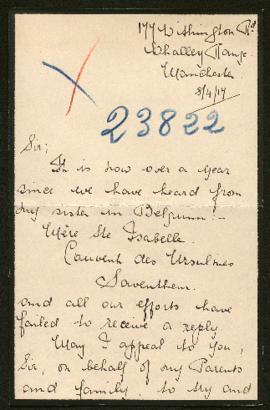 177 Withington Rd
Whalley Range
Manchester
8/4/17
23822
Sir;
It is now over a year
since we have heard from
my sister in Belgium:-
Mère Ste Isabelle
Couvent des Ursulines
Saventhem.
and all our efforts have
failed to receive a reply
May I appeal to you,
Sir, on behalf of my Parents
and family, to try and